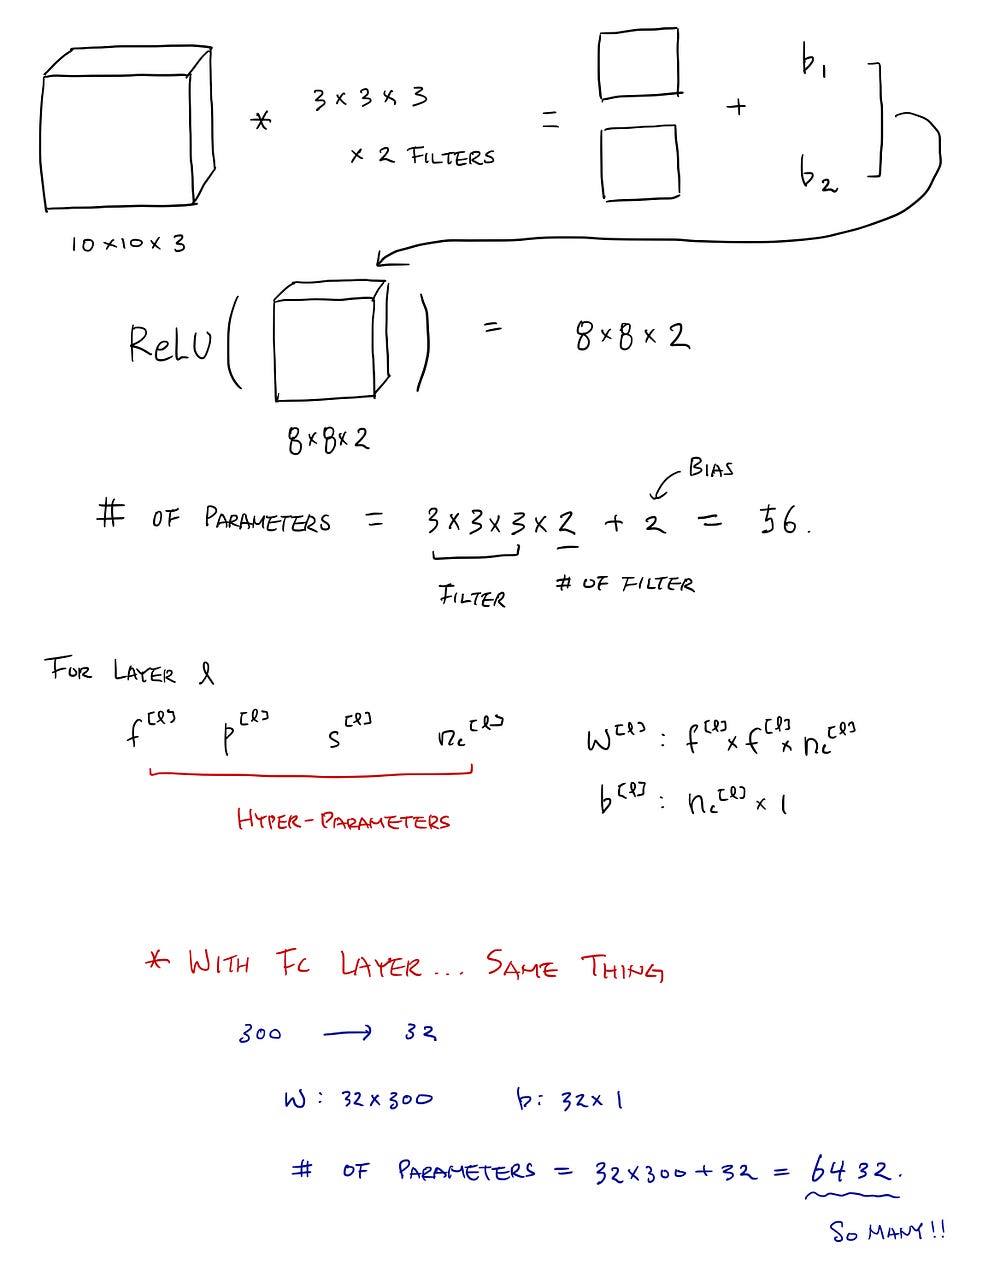 * 3 × 3 × 3 = + b₁
× 2 FILTERS b₂
10 × 10 × 3
ReLU ( ) = 8 × 8 × 2
8 × 8 × 2
BIAS
# OF PARAMETERS = 3 × 3 × 3 × 2 + 2 = 56.
FILTER # OF FILTER
FOR LAYER l
f^[l] p^[l] s^[l] n_c^[l] W^[l] : f^[l] × f^[l] × n_c^[l]
HYPER-PARAMETERS b^[l] : n_c^[l] × 1
* WITH FC LAYER... SAME THING
300 → 32
W : 32 × 300 b : 32 × 1
# OF PARAMETERS = 32 × 300 + 32 = 6432.
SO MANY!!